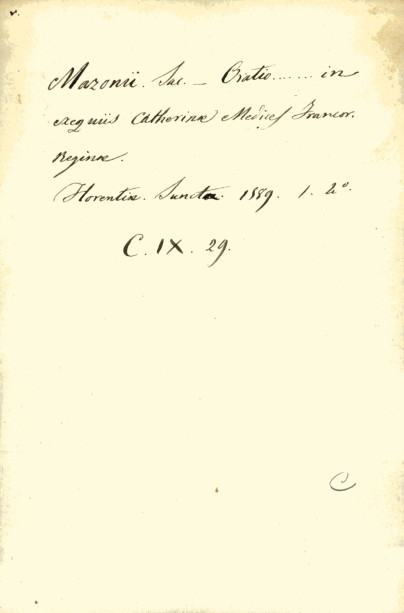 Mazonii. Jac. — Oratio....... in
exequiis Catherinæ Medices Francor.
Reginæ.
Florentiæ. Junctæ. 1589. 1. 4°.
C. IX. 29.
C